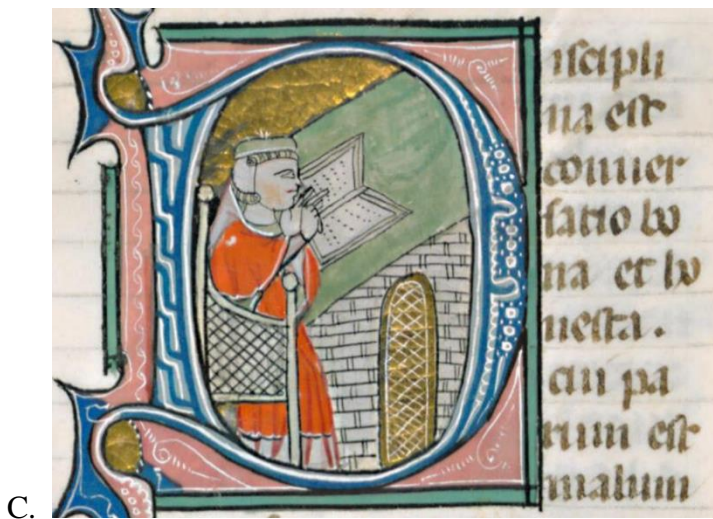 Discipli
na est
conuer
satio bo
na et ho
nesta.
cui pa
rum est
malum
C.